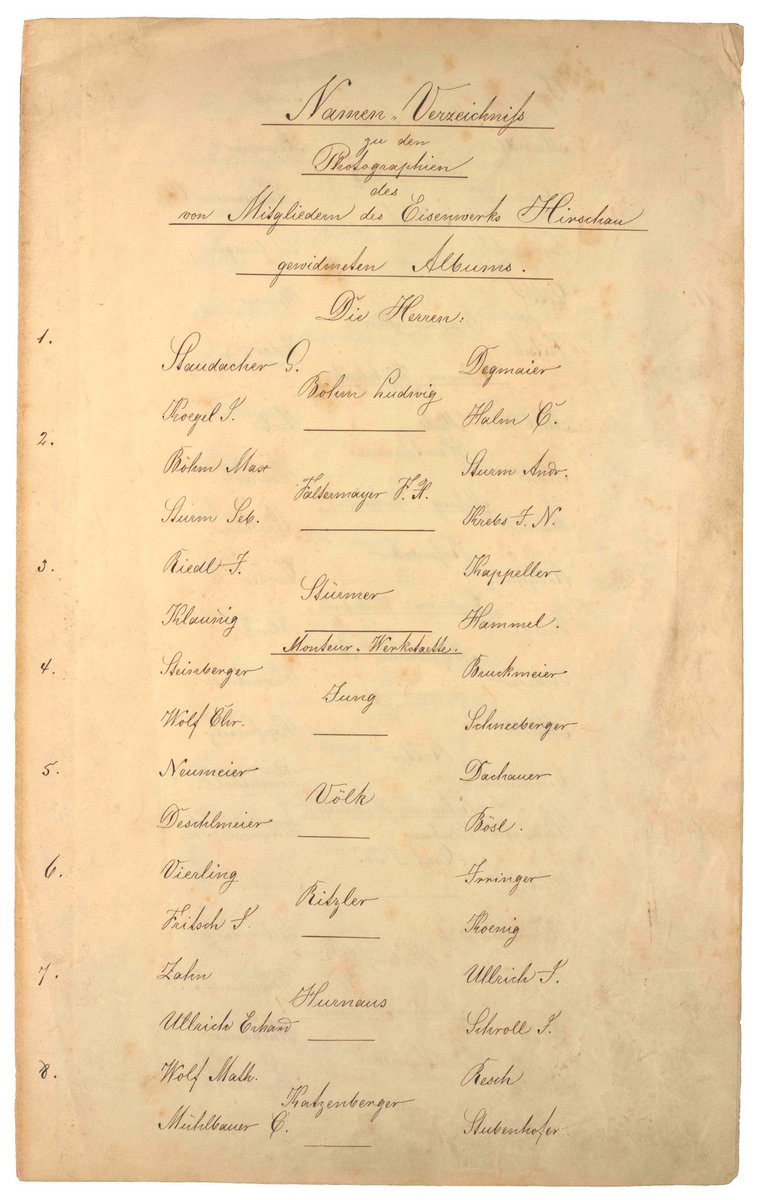 Namen-Verzeichniß
zu den
Photographien
des
von Mitgliedern des Eisenwerks Hirschau
gewidmeten Albums.
Die Herren:
1.
Staudacher G. Degmaier
Böhm Ludwig
Koegel J. Halm C.
2.
Böhm Max Sturm Andr.
Faltermayer F. X.
Sturm Seb. Krebs J. N.
3.
Riedl J. Kappeller
Stürmer
Klaunig Hammel.
Monteur-Werkstaette.
4.
Steinberger Bruckmeier
Jung
Wolf Chr. Schneeberger
5.
Neumeier Dachauer
Völk
Deschlmeier Bösl.
6.
Vierling Irringer
Ritzler
Fritsch J. Koenig
7.
Zahn Ullrich J.
Hurnaus
Ullrich Erhard Schroll J.
8.
Wolf Math. Resch
Katzenberger
Mühlbauer C. Stubenhofer